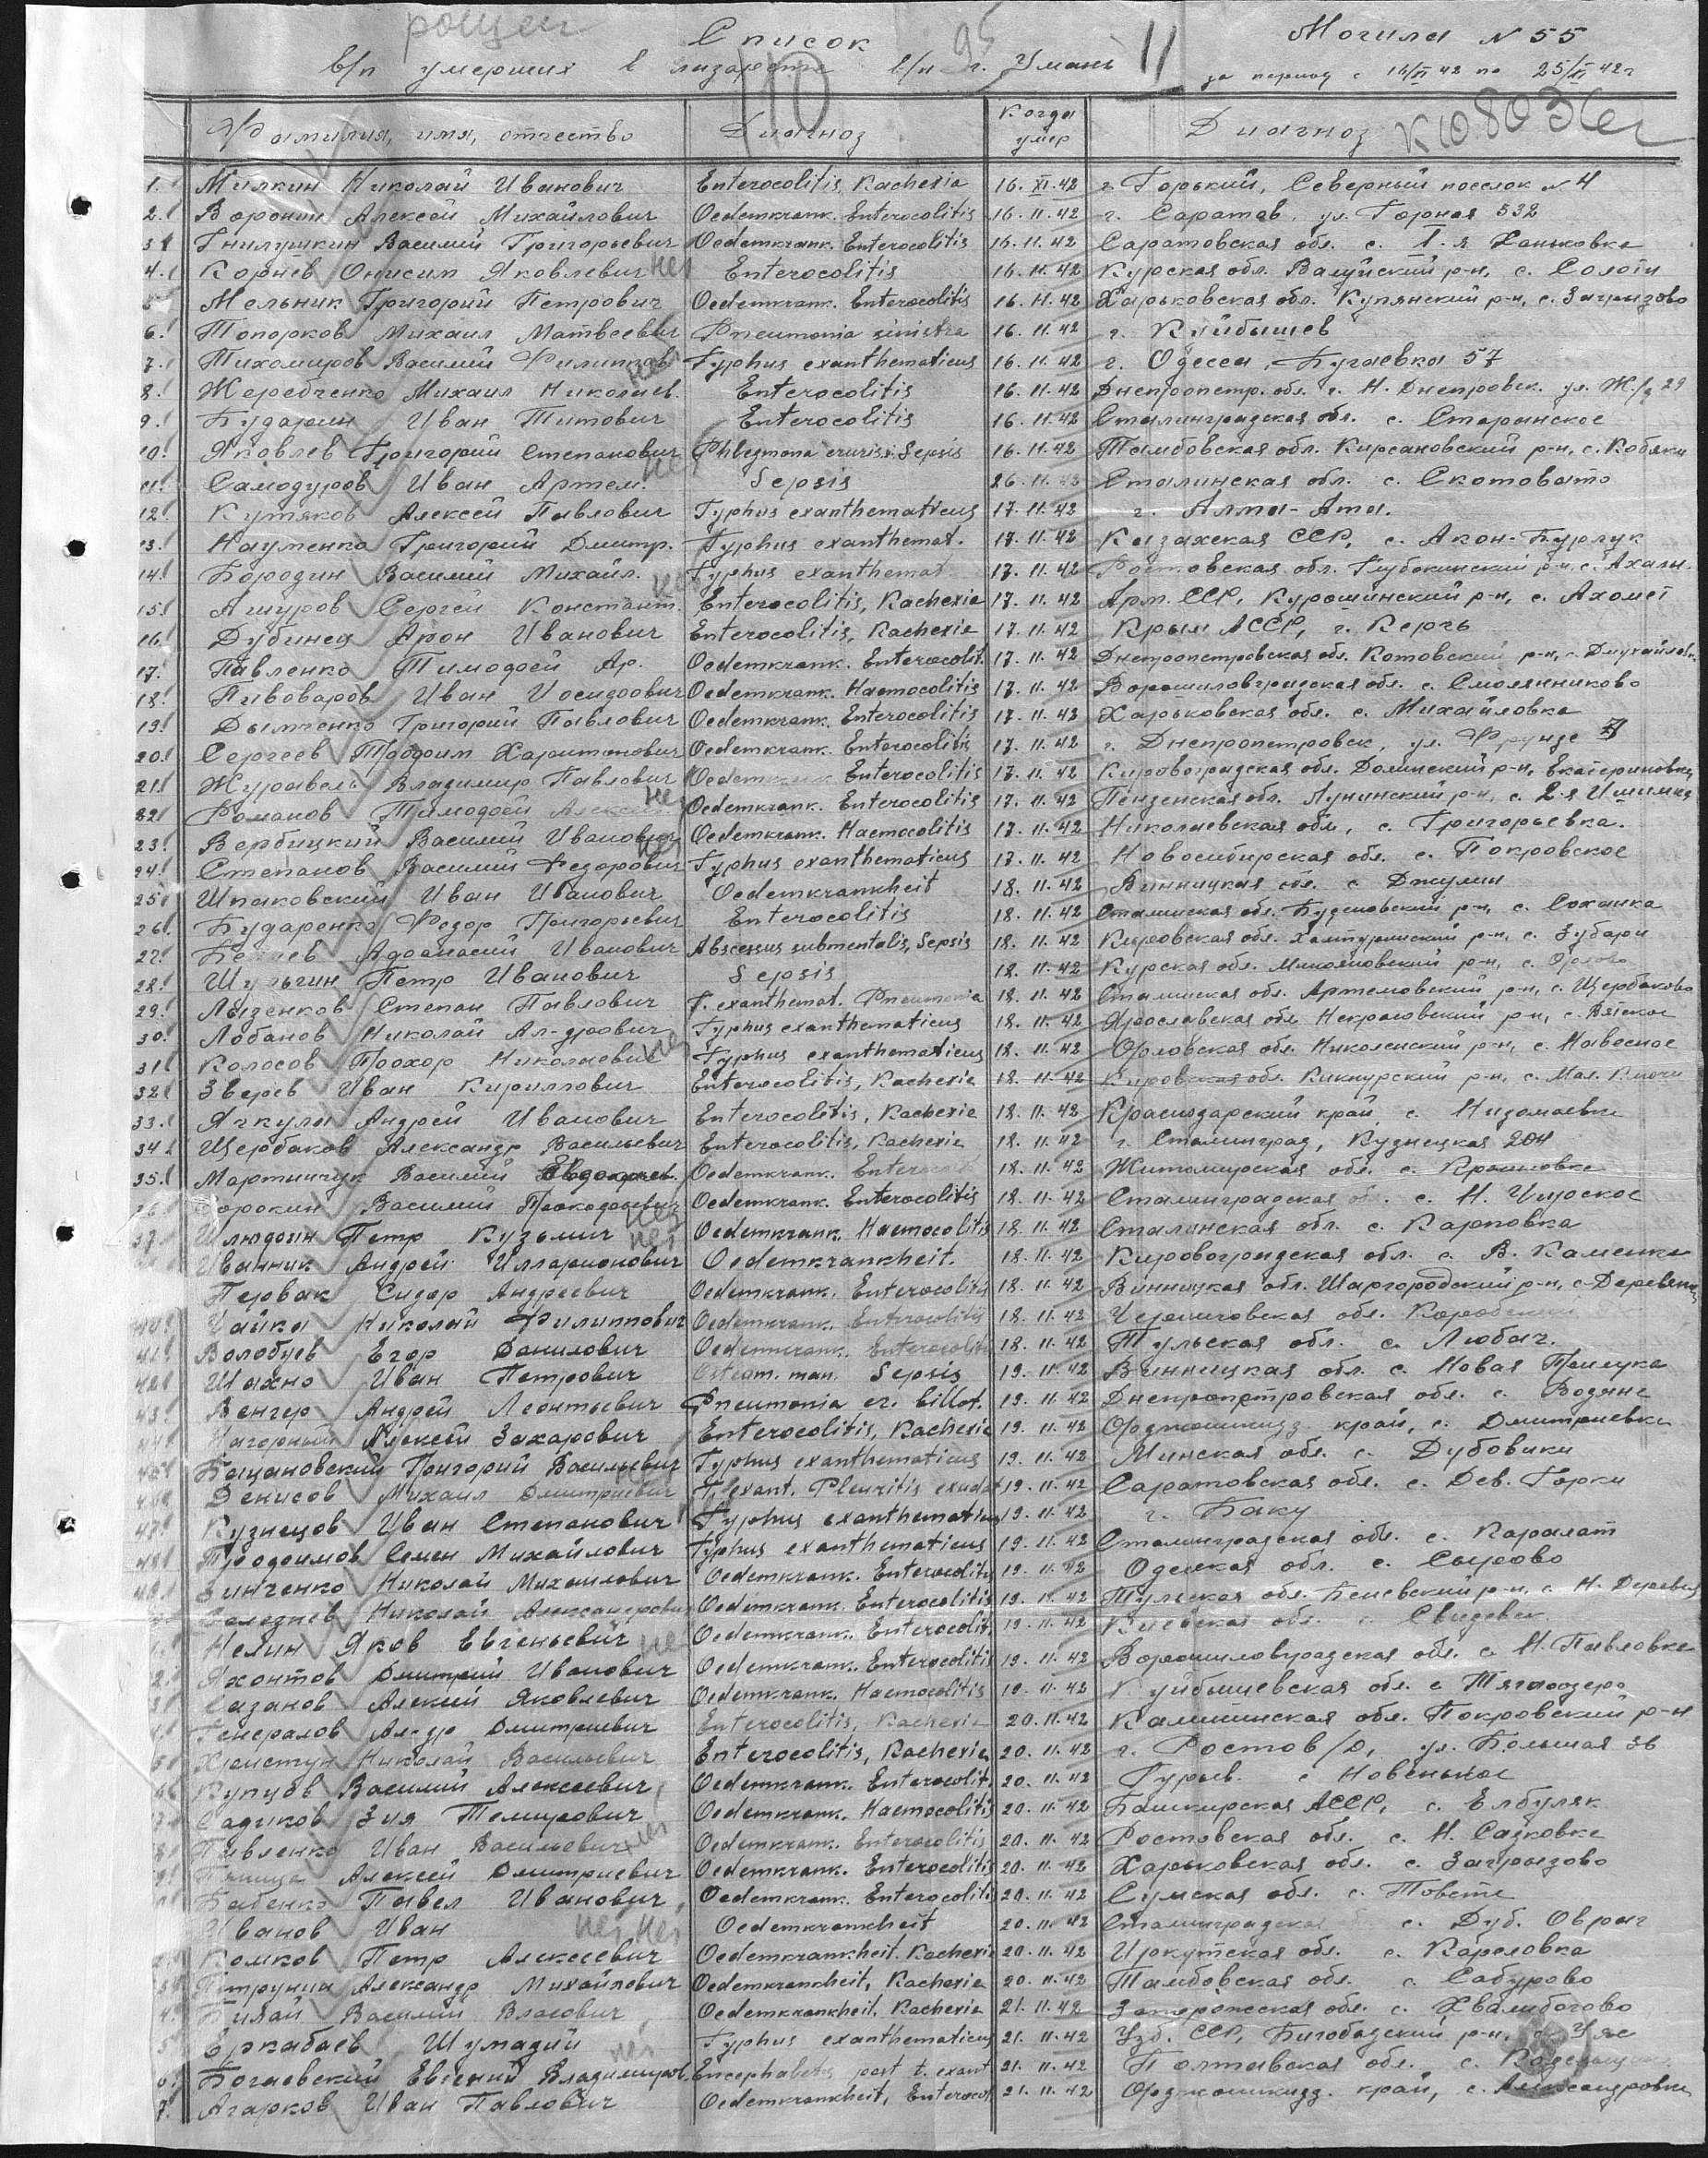 рощен
Список
110 95 11
в/п умерших в лазарете в/н г. Умань
Могила № 55
за период с 16/XI 42 по 25/XI 42 г
Фамилия, имя, отчество Диагноз Когда умер Диагноз
1. Милкин Николай Иванович Enterocolitis, Kachexia 16. XI. 42 г. Горький, Северный поселок № 4
2. Воронин Алексей Михайлович Oedemkrank. Enterocolitis 16. 11. 42 г. Саратов, ул. Горная 532
3. Гнилушкин Василий Григорьевич Oedemkrank. Enterocolitis 16. 11. 42 Саратовская обл. с. 1-я Ханьковка
4. Корнев Онисим Яковлевич нет Enterocolitis 16. 11. 42 Курская обл. Валуйский р-н, с. Солоти
5. Мельник Григорий Петрович Oedemkrank. Enterocolitis 16. 11. 42 Харьковская обл. Купянский р-н, с. Загрызово
6. Топорков Михаил Матвеевич Pneumonia sinistra 16. 11. 42 г. Куйбышев
7. Тихомиров Василий Филиппов. Typhus exanthematicus 16. 11. 42 г. Одесса, Бугаевка 57
8. Жеребченко Михаил Николаев. Enterocolitis 16. 11. 42 Днепропетр. обл. г. Н. Днепровск. ул. Ж/д 29
9. Бударин Иван Титович Enterocolitis 16. 11. 42 Сталинградская обл. с. Старинское
10. Яковлев Григорий Степанович Phlegmona cruris Sepsis 16. 11. 42 Тамбовская обл. Кирсановский р-н, с. Кобяки
11. Самодуров Иван Артем. нет Sepsis 26. 11. 42 Сталинская обл. с. Скотовато
12. Кутяков Алексей Павлович Typhus exanthematicus 17. 11. 42 г. Алма-Ата.
13. Науменко Григорий Дмитр. Typhus exanthemat. 17. 11. 42 Казахская ССР, с. Акон-Бурлук
14. Бородин Василий Михайл. Typhus exanthemat. 17. 11. 42 Ростовская обл. Глубокинский р-н, с. Ахалн.
15. Ашуров Сергей Констант. нет Enterocolitis, Kachexie 17. 11. 42 Арм. ССР, Курошинский р-н, с. Ахомет
16. Дубинец Арон Иванович Enterocolitis, Kachexie 17. 11. 42 Крым АССР, г. Керчь
17. Павленко Тимофей Ар. Oedemkrank. Enterocolit. 17. 11. 42 Днепропетровская обл. Котовский р-н,
18. Пивоваров Иван Иосифович Oedemkrank. Haemocolitis 17. 11. 42 Ворошиловградская обл. с. Смолянниково
19. Дымченко Григорий Павлович Oedemkrank. Enterocolitis 17. 11. 42 Харьковская обл. с. Михайловка
20. Сергеев Трофим Харитонович Oedemkrank. Enterocolitis 17. 11. 42 г. Днепропетровск, ул. Фрунзе 7
21. Журавель Владимир Павлович Oedemkrank. Enterocolitis 17. 11. 42 Кировоградская обл. Долинский р-н, Екатериновка
22. Романов Тимофей Алексе нет Oedemkrank. Enterocolitis 17. 11. 42 Пензенская обл. Лунинский р-н, с. 2-я Ишимка
23. Вербицкий Василий Иванович Oedemkrank. Haemocolitis 17. 11. 42 Николаевская обл, с. Григорьевка.
24. Степанов Василий Федорович нет Typhus exanthematicus 17. 11. 42 Новосибирская обл. с. Покровское
25. Шпаковский Иван Иванович Oedemkrankheit 18. 11. 42 Винницкая обл. с. Джулин
26. Бударенко Федор Григорьевич Enterocolitis 18. 11. 42 Сталинская обл. Буденовский р-н, с. Соханка
27. Афанасий Иванович Abscessus submentalis, Sepsis 18. 11. 42 Кировская обл. Халтуринский р-н, с. Зубари
28. Шульгин Петр Иванович Sepsis 18. 11. 42 Курская обл. Микояновский р-н, с. Орлово
29. Лызенков Степан Павлович T. exanthemat. Pneumonia 18. 11. 42 Сталинская обл. Артемовский р-н, с. Щербаково
30. Лобанов Николай Ал-дрович Typhus exanthematicus 18. 11. 42 Ярославская обл. Некрасовский р-н, с. Вятское
31. Колосов Прохор Николаевич нет Typhus exanthematicus 18. 11. 42 Орловская обл. Никольский р-н, с. Навесное
32. Зверев Иван Кириллович Enterocolitis, Kachexie 18. 11. 42 Кировская обл. Кикнурский р-н, с. Мал. Ключи
33. Ячкула Андрей Иванович Enterocolitis, Kachexie 18. 11. 42 Краснодарский край, с. Незамаевка
34. Щербаков Александр Васильевич Enterocolitis, Kachexie 18. 11. 42 г. Сталинград, Кузнецкая 204
35. Мартинчук Василий Евдоким. Oedemkrank. Enterocolit 18. 11. 42 Житомирская обл. с. Крошовка
36. Сорокин Василий Прокофьевич Oedemkrank. Enterocolitis 18. 11. 42 Сталинградская обл. с. Н. Чирское
37. Шлюфин Петр Кузьмич нет Oedemkrank. Haemocolitis 18. 11. 42 Сталинская обл. с. Карповка
Иванник Андрей Илларионович Oedemkrankheit. 18. 11. 42 Кировоградская обл. с. В. Каменка
Первак Сидор Андреевич Oedemkrank. Enterocolitis 18. 11. 42 Винницкая обл. Шаргородский р-н, с.
40. Чайка Николай Филиппович Oedemkrank. Enterocolitis 18. 11. 42 Черниговская обл.
41. Волобуев Егор Данилович Oedemkrank. Enterocolitis 18. 11. 42 Тульская обл. с. Любач.
42. Шахно Иван Петрович Osteom. man. Sepsis 19. 11. 42 Винницкая обл. с. Новая Прилука
43. Венгер Андрей Леонтьевич Pneumonia cr. billat. 19. 11. 42 Днепропетровская обл. с. Водяне
44. Нагорный Алексей Захарович Enterocolitis, Kachexie 19. 11. 42 Орджоникидз. край, с. Дмитриевка
45. Бацановский Григорий Васильевич Typhus exanthematicus 19. 11. 42 Минская обл. с. Дубовики
46. Денисов Михаил Дмитриевич T. exant. Pleuritis exuda 19. 11. 42 Саратовская обл. с. Дев. Горки
47. Кузнецов Иван Степанович Typhus exanthematicus 19. 11. 42 г. Баку
48. Трофимов Семен Михайлович Typhus exanthematicus 19. 11. 42 Сталинградская обл. с. Каралат
49. Зинченко Николай Михайлович Oedemkrank. Enterocolitis 19. 11. 42 Одесская обл. с. Сырово
Николай Александрович Oedemkrank. Enterocolitis 19. 11. 42 Тульская обл. р-н, с. Н. Деревня
1. Нелин Яков Евгеньевич нет Oedemkrank. Enterocolit. 19. 11. 42 Киевская обл. с. Свидевек
2. Яхонтов Дмитрий Иванович Oedemkrank. Enterocolitis 19. 11. 42 Ворошиловградская обл. с. Н. Павловка
3. Сазанов Алексей Яковлевич Oedemkrank. Haemocolitis 19. 11. 42 Куйбышевская обл. с. Тяглоозеро
4. Генералов Ал-др Дмитриевич Enterocolitis, Kachexie 20. 11. 42 Калининская обл. Покровский р-н
5. Николай Васильевич Enterocolitis, Kachexie 20. 11. 42 г. Ростов/Д, ул. Большая 36
6. Купцов Василий Алексеевич Oedemkrank. Enterocolit. 20. 11. 42 Гурьев. с. Новенькое
7. Садиков Зия Темирович Oedemkrank. Haemocolitis 20. 11. 42 Башкирская АССР, с. Елбуляк
8. Павленко Иван Васильевич нет Oedemkrank. Enterocolitis 20. 11. 42 Ростовская обл. с. Н. Садковка
9. Алексей Дмитриевич Oedemkrank. Enterocolitis 20. 11. 42 Харьковская обл. с. Загрызово
Бабенко Павел Иванович Oedemkrank. Enterocolitis 20. 11. 42 Сумская обл. с. Товсте
Иванов Иван нет нет Oedemkrankheit 20. 11. 42 Сталинградская с. Дуб. Овраг
2. Комков Петр Алексеевич Oedemkrankheit. Kachexie 20. 11. 42 Иркутская обл. с. Кареловка
3. Петрунин Александр Михайлович Oedemkrankheit, Kachexie 20. 11. 42 Тамбовская обл. с. Сабурово
4. Билай Василий Власович Oedemkrankheit. Kachexie 21. 11. 42 Запорожская обл. с.
5. Еркабаев Шумадий Typhus exanthematicus 21. 11. 42 Узб. ССР, р-н, с.
6. Богаевский Евгений Владимиров. нет Encephalitis post t. exant 21. 11. 42 Полтавская обл. с.
7. Агарков Иван Павлович Oedemkrankheit, Enterocol 21. 11. 42 Орджоникидз. край, с. Александровка